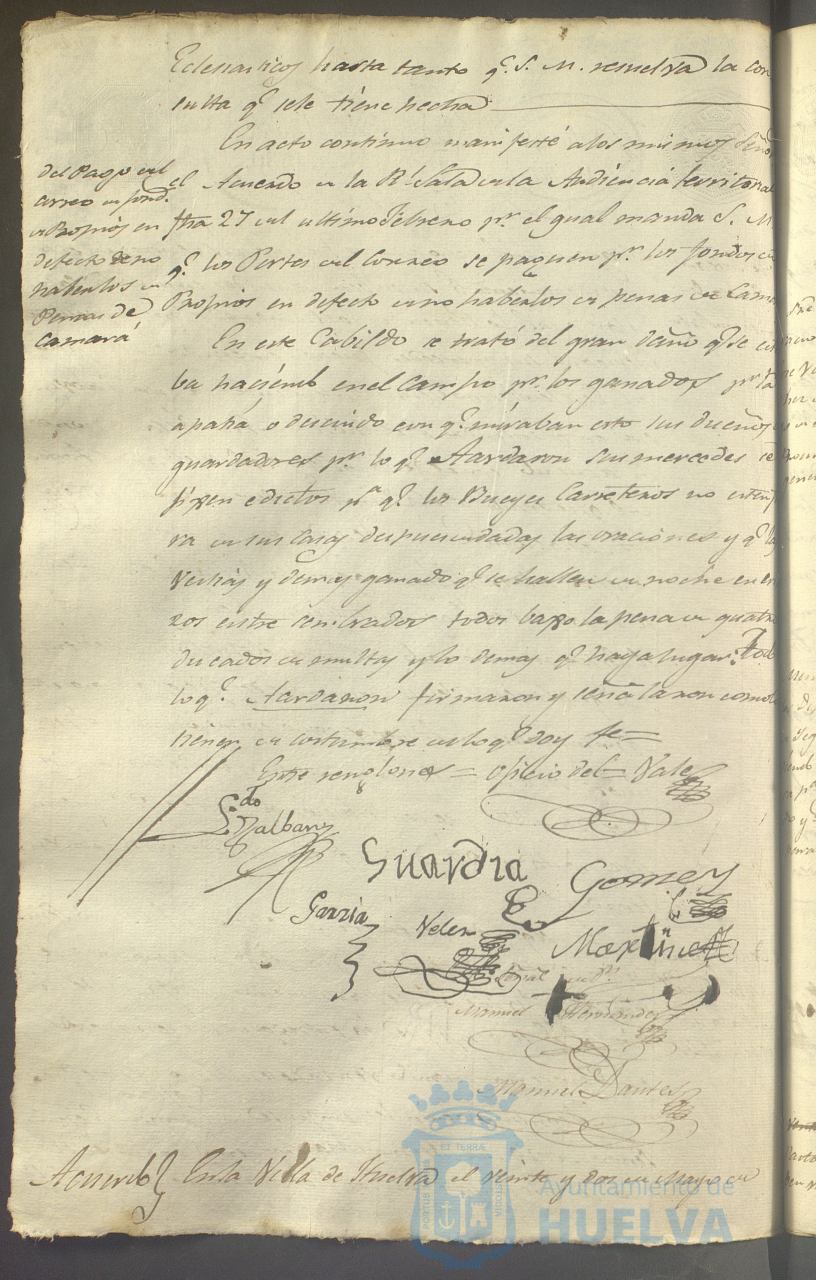 Eclesiasticos hasta tanto q.e S. M. resuelva la con
sulta q.e sele tiene hecha
En acto continuo manifesté alos mismos Señor
el Acuerdo de la R.l Sala de la Audiencia territorial
fha 27 del ultimo Febrero p.r el qual manda S. M.
q.e los Portes del Correo se paguen p.r los fondos de
Propios en defecto de no haberlos de penas de Cama
del Pago del
correo de fond.s
de Propios en
defecto de no
haberlos de
Penas de
Camara
En este Cabildo se trató del gran daño q.e se esta
ba haciendo en el Campo p.r los ganados p.r la
apatía o descuido con q.e miraban esto sus dueños
guardadores p.r lo q.e Acordaron sus mercedes se
fixen edictos p.a q.e los Bueyes Carreteros no esten
ra de sus Casas despues de dadas las oraciones y q.e las
Vestias y demas ganado q.e se hallen de noche en
zos entre sembrados todos baxo la pena de quatro
ducados de multa y lo demas q.e haya lugar: Todo
lo q.e Acordaron firmaron y señalaron como
tienen de costumbre de lo q.e doy fe=
Entre renglones = oficio del = Vale
L.do Villalba
Guardia
Gomez
Garzia
Velez
Martinez
Señal de
Manuel Hernandez
Manuel Dantes
Acuerdo
En la Villa de Huelva el veinte y dos de Mayo de
ET TERRÆ
PORTUS
CUSTODIA
Ayuntamiento de
HUELVA